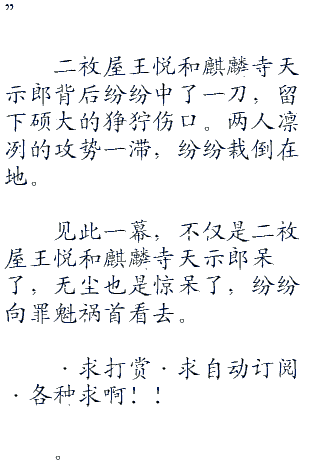 ”
二枚屋王悦和麒麟寺天
示郎背后纷纷中了一刀，留
下硕大的狰狞伤口。两人凛
冽的攻势一滞，纷纷栽倒在
地。
见此一幕，不仅是二枚
屋王悦和麒麟寺天示郎呆
了，无尘也是惊呆了，纷纷
向罪魁祸首看去。
·求打赏·求自动订阅
·各种求啊！！
。